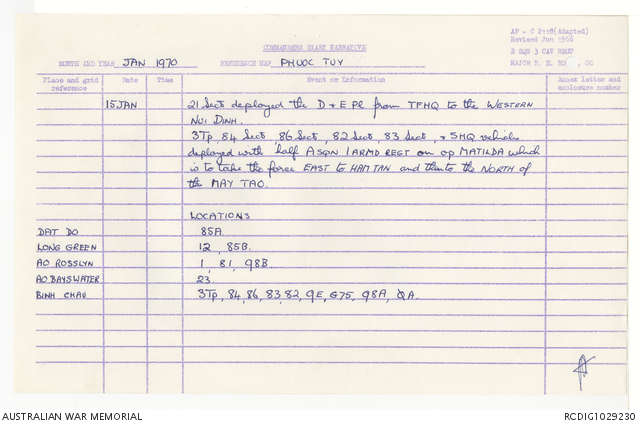 AF - C 2118 (Adapted)
Revised Jun 1966
COMMANDERS DIARY NARRATIVE
B SQN 3 CAV REGT
MONTH AND YEAR JAN 1970 REFERENCE MAP PHUOC TUY
MAJOR , OC
Place and grid reference Date Time Event or Information Annex letter and enclosure number
15 JAN 21 Sect deployed the D + E Pl from TFHQ to the WESTERN
NUI DINH.
3Tp, 84 Sect, 86 Sect, 82 Sect, 83 Sect, + SHQ vehicles
deployed with half A SQN 1 ARMD REGT on op MATILDA which
is to take the force EAST to HAM TAN and thence to the NORTH of
the MAY TAO.
LOCATIONS
DAT DO 85A.
LONG GREEN 12, 85B.
AO ROSSLYN 1, 81, 98B.
AO BAYSWATER 23.
BINH CHAU 3Tp, 84, 86, 83, 82, 9E, G75, 98A, QA.
AUSTRALIAN WAR MEMORIAL
RCDIG1029230